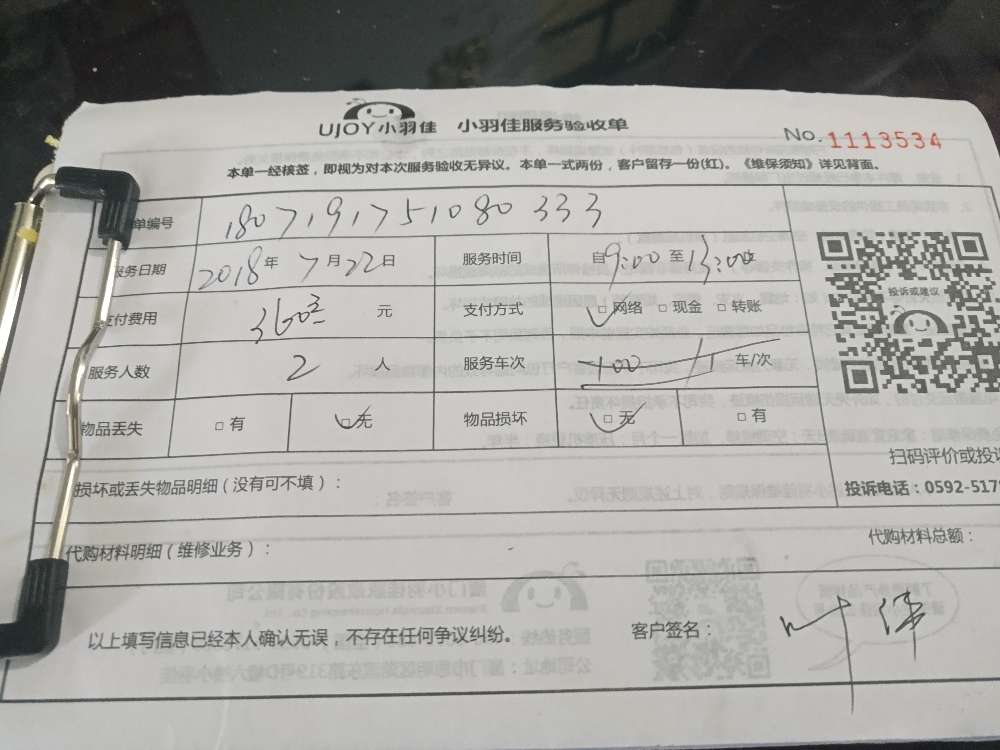 UJOY小羽佳 小羽佳服务验收单
No. 1113534
本单一经核签，即视为对本次服务验收无异议。本单一式两份，客户留存一份(红)。《维保须知》详见背面。
单编号 180719175108 0333
服务日期 2018年7月22日 服务时间 自9:00至13:00
支付费用 元 支付方式 □网络 □现金 □转账
服务人数 2 人 服务车次 车/次
物品丢失 □有 □无 物品损坏 □无 □有
投诉或建议
扫码评价或投诉
投诉电话：0592-5179
损坏或丢失物品明细（没有可不填）：
代购材料明细（维修业务）：
代购材料总额：
以上填写信息已经本人确认无误，不存在任何争议纠纷。
客户签名： 叶伟